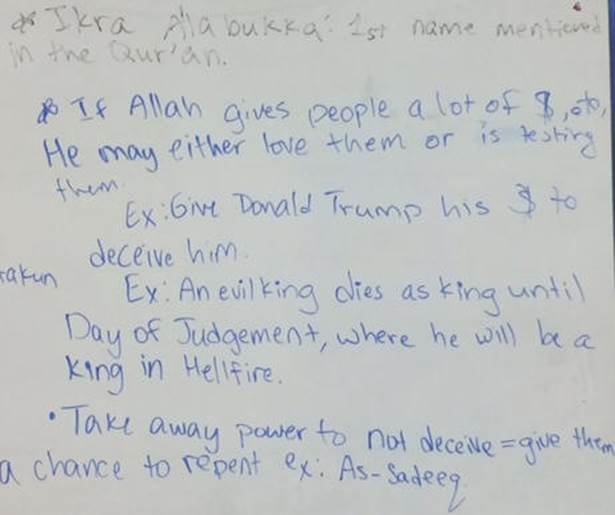 * Ikra Alabukka: 1st name mentioned
in the Qur'an.
* If Allah gives people a lot of $, etc,
He may either love them or is testing
them.
Ex: Give Donald Trump his $ to
deceive him.
takun
Ex: An evil king dies as king until
Day of Judgement, where he will be a
king in Hellfire.
• Take away power to not deceive = give them
a chance to repent ex: As-Sadeeq